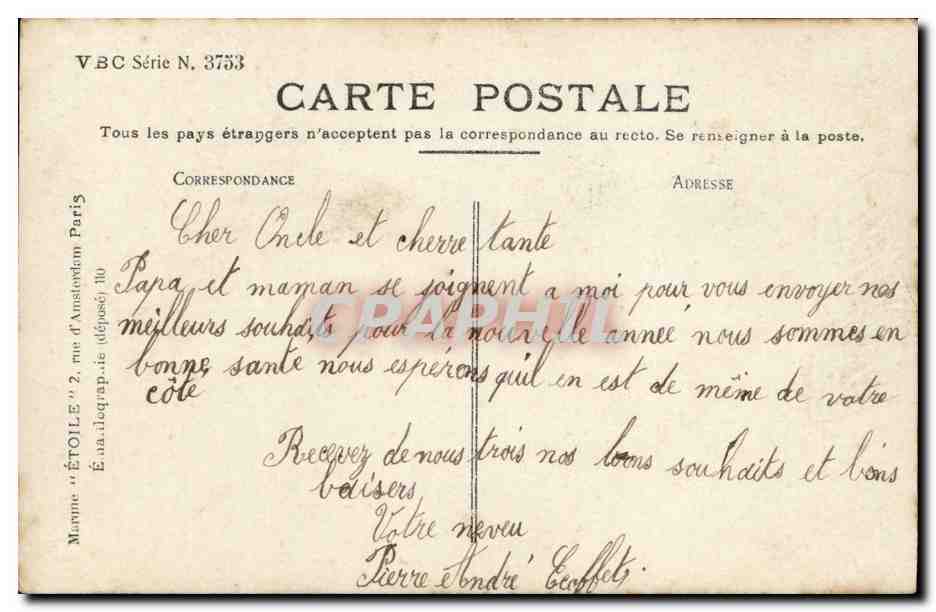 VBC Série N. 3753
CARTE POSTALE
Tous les pays étrangers n'acceptent pas la correspondance au recto. Se renseigner à la poste.
CORRESPONDANCE
ADRESSE
Cher Oncle et cherre tante
Papa et maman se joignent a moi pour vous envoyer nos
meilleurs souhaits pour la nouvelle année nous sommes en
bonne santé nous espérons quil en est de même de votre
côte
Recevez de nous trois nos bons souhaits et bons
baisers
Votre neveu
Pierre André
Marque "ÉTOILE" 2, rue d'Amsterdam Paris
Émaillographie (déposé) 110
CPAPHIL